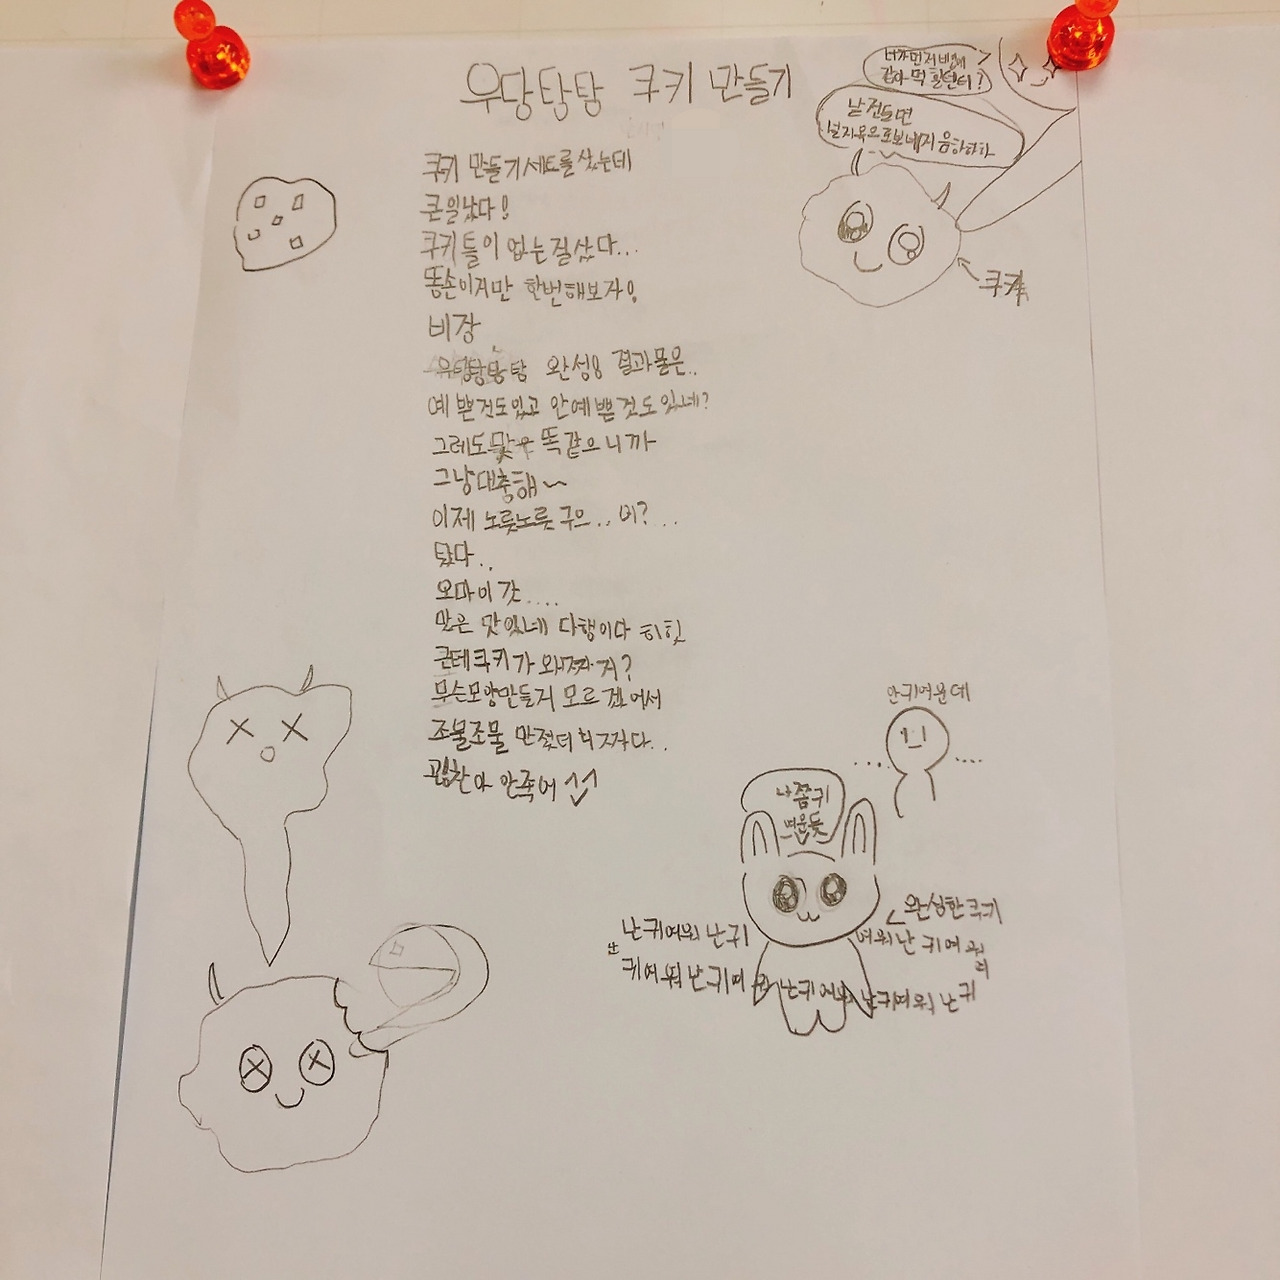 우당탕탕 쿠키 만들기
쿠키 만들기세트를 샀는데
큰일났다!
쿠키틀이 없는걸샀다...
똥손이지만 한번해보자!
비장
우당탕탕탕 완성! 결과물은..
예쁜것도있고 안예쁜것도있네?
그레도맞은 똑같으니까
그냥대충해~
이제 노릇노릇 구으..미?...
탔다..
오마이갓....
맛은 맛있네 다행이다 히힛
근데쿠키가 왜짜지?
무슨모양만들지 모르겠어서
조물조물 만졌더니짜다..
괜찬아 만족어
너가먼저뱃에
갈아먹힐텐데?
날건들면
널지옥으로보네지 음하하하
쿠키
안귀여운데
나쫌귀
여운듯
완성한쿠키
난귀여워난귀
여워난귀여워
난
귀여워난귀여워난귀여워난귀여워난귀